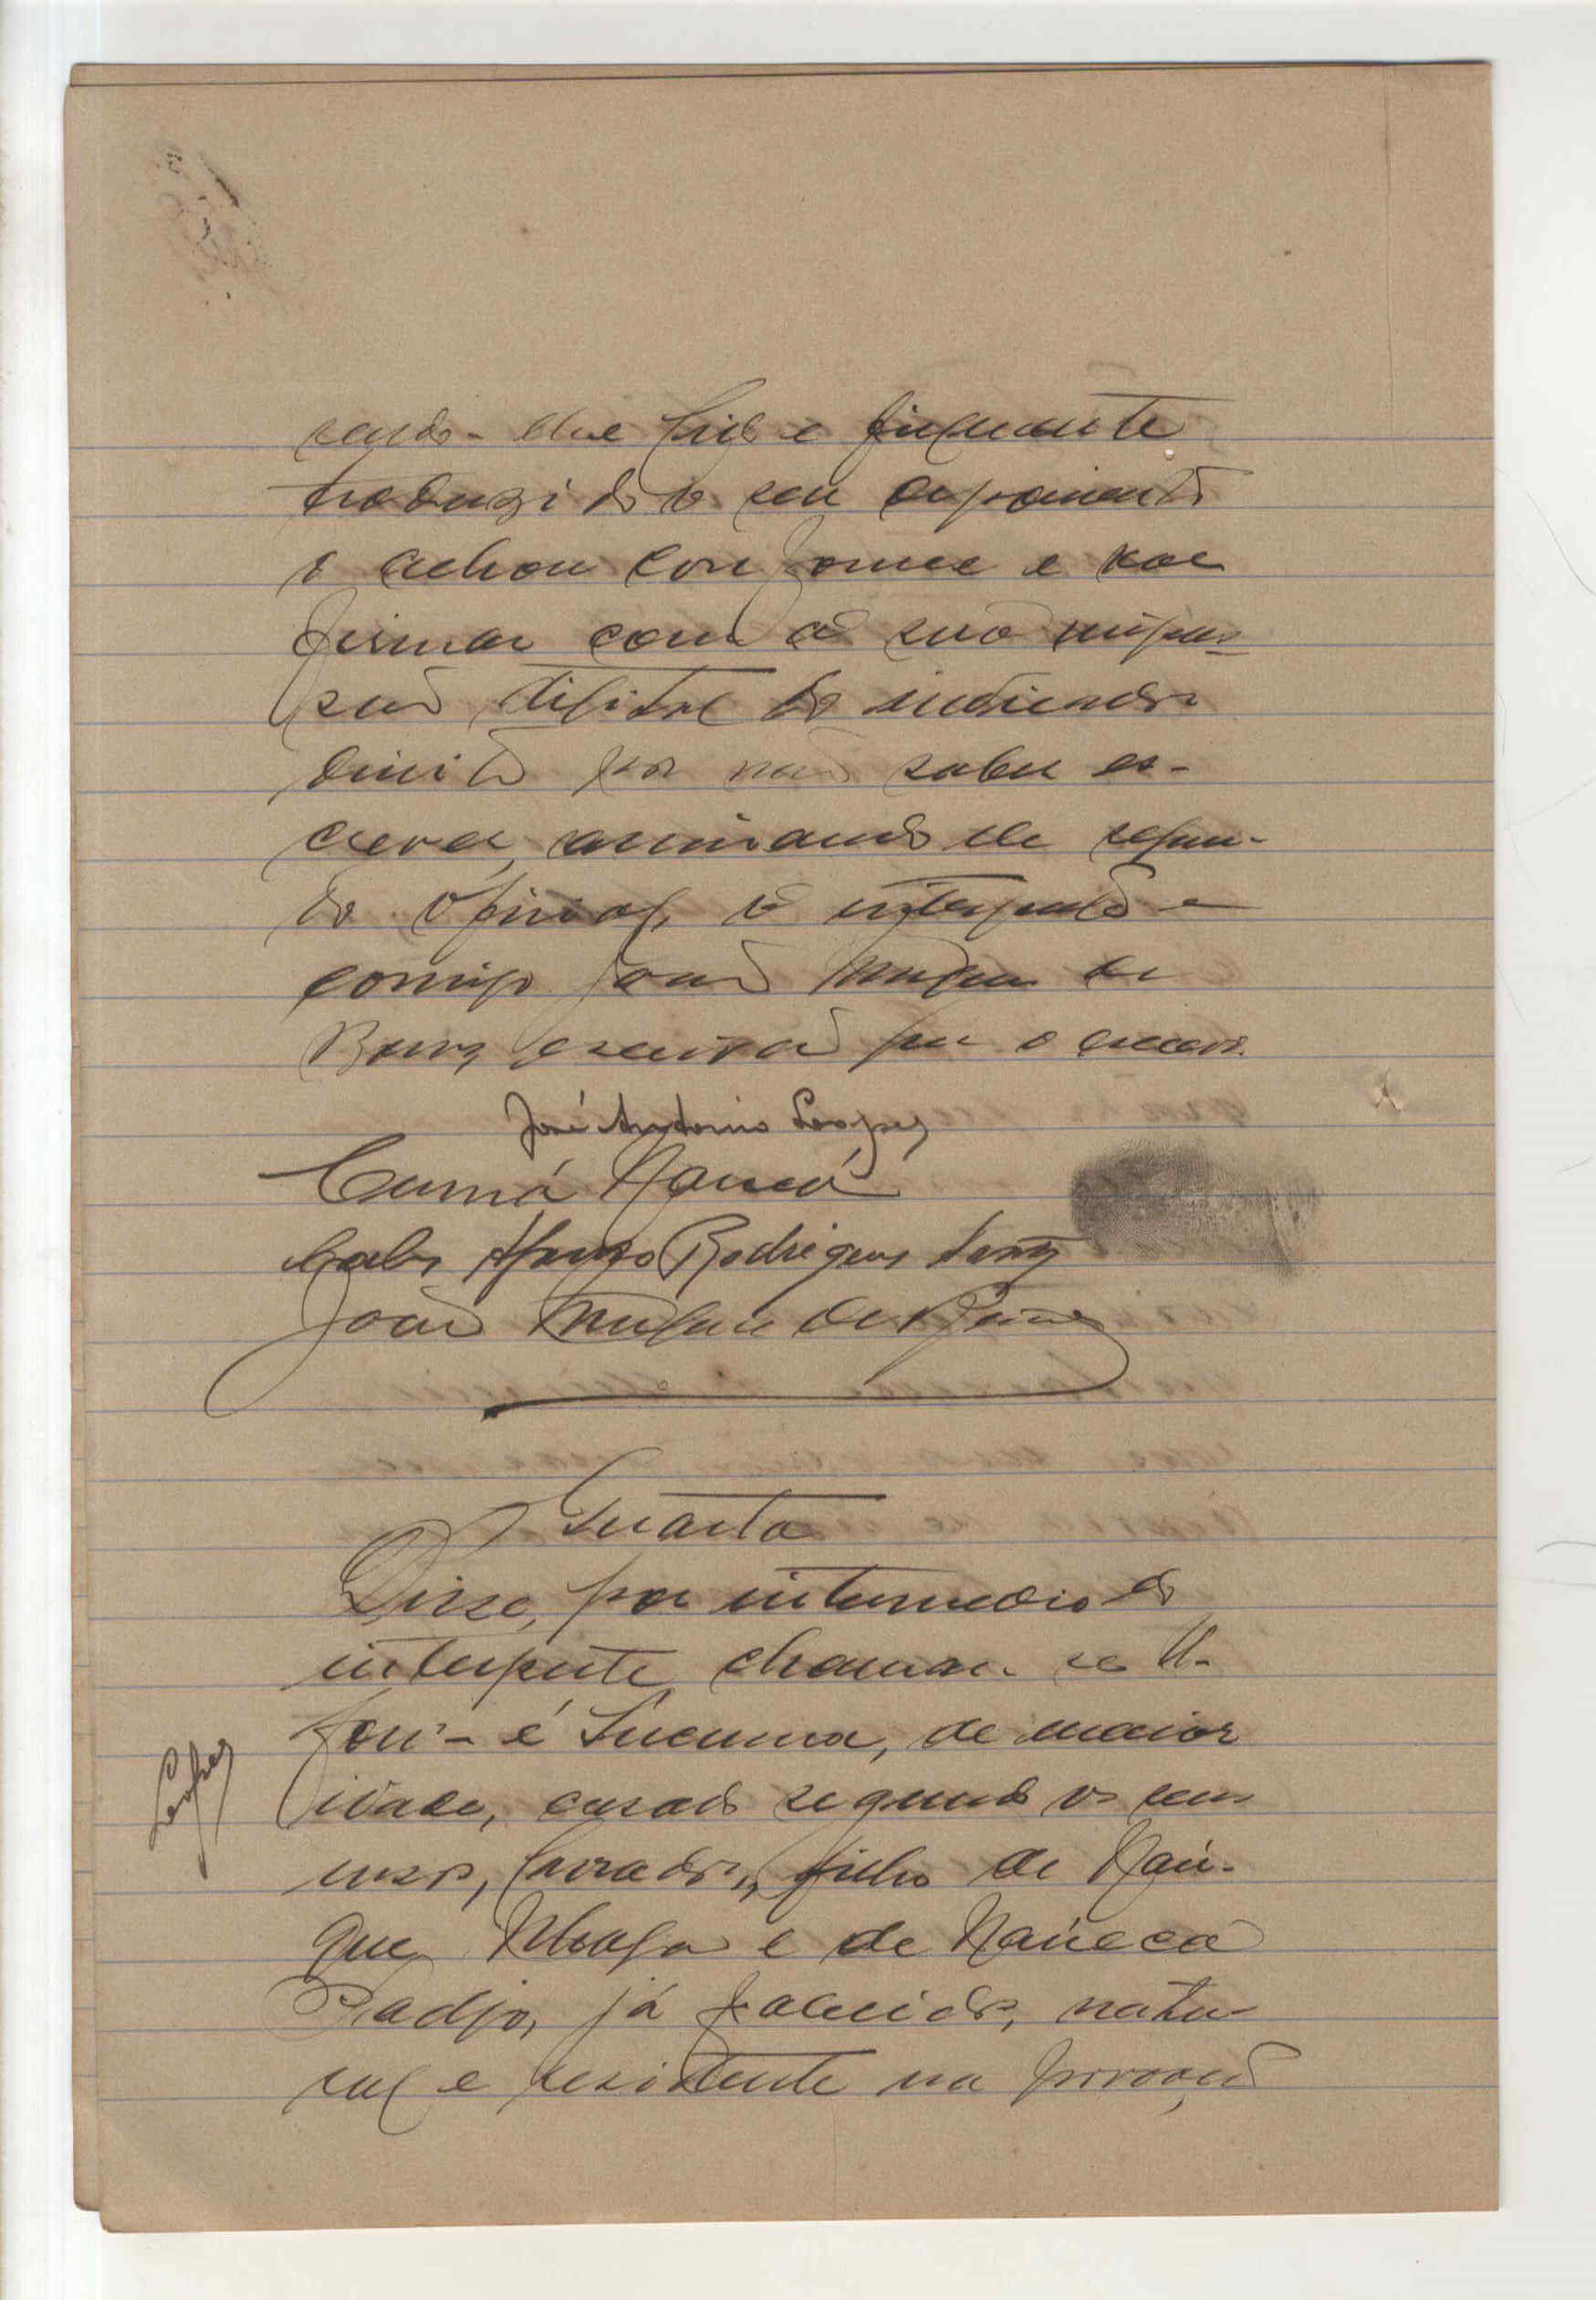 sendo-lhe lido e fielmente
traduzido o seu depoimento
o achou conforme e vae
firmar com a sua impres-
são digital do indicador
direito por não saber es-
crever, assinando ele segun-
do oficial, o interprete e
comigo João de
escrivão que o escrevi.
José Antonio Lopes
Cumá Nancó
Carlos Afonso Rodrigues
João de
Quarta
Disse, por intermedio do
interprete chamar-se U-
foni-é Lucuma, de maior
idade, casado segundo os seus
usos, lavrador, filho de Naú-
que e de Naneca
Sadjo, já falecidos, natu-
ral e residente na povoação
Lopes